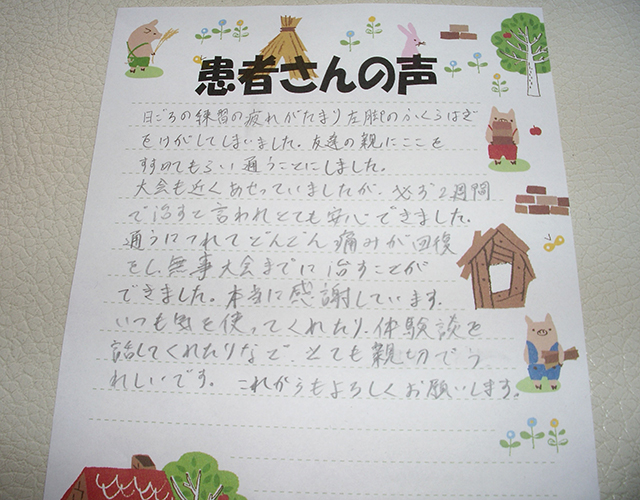 患者さんの声
日ごろの練習の疲れがたまり左脚のふくらはぎ
をけがしてしまいました。友達の親にここを
すすめてもらい通うことにしました。
大会も近くあせっていましたが、必ず2週間
で治すと言われとても安心できました。
通うにつれてどんどん痛みが回復
をし、無事大会までに治すことが
できました。本当に感謝しています。
いつも気を使ってくれたり、体験談を
話してくれたりなど とても親切でう
れしいです。これからもよろしくお願いします。